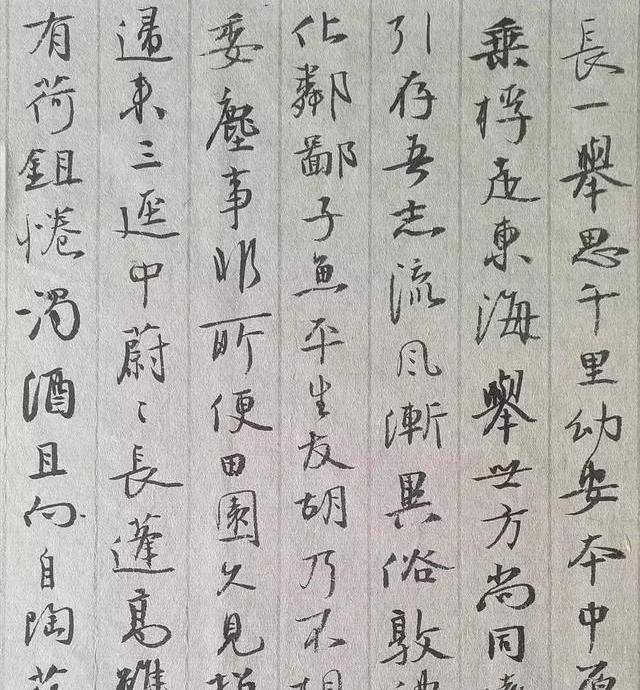 長一舉思千里幼安本中原
乘桴走東海舉世方尚同
引存吾志流風漸異俗敦
化鄰鄙子魚平生友胡乃不相
委塵事非所便田園久見招
歸來三逕中蔚〻長蓬蒿雖
有荷鉏倦濁酒且向自陶